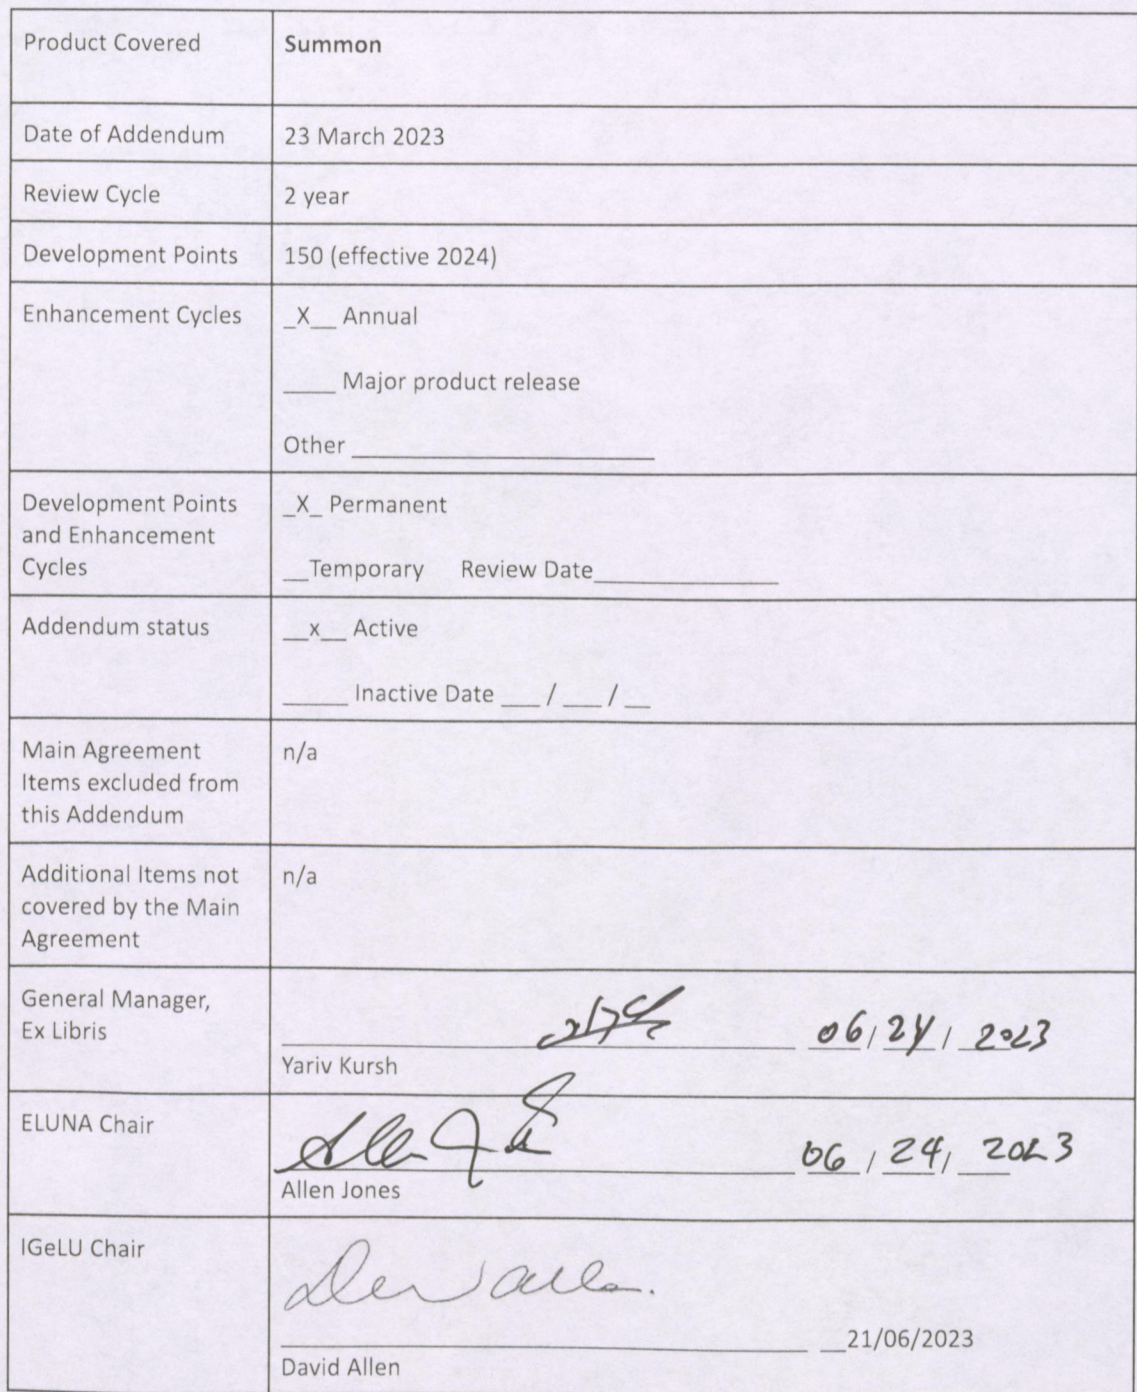 Product Covered
Summon
Date of Addendum
23 March 2023
Review Cycle
2 year
Development Points
150 (effective 2024)
Enhancement Cycles
_X__ Annual
____ Major product release
Other ______________________
Development Points
and Enhancement
Cycles
_X_ Permanent
__Temporary Review Date______________
Addendum status
__x__ Active
_____ Inactive Date ___ / ___ / __
Main Agreement
Items excluded from
this Addendum
n/a
Additional Items not
covered by the Main
Agreement
n/a
General Manager,
Ex Libris
06/24/2023
Yariv Kursh
ELUNA Chair
06/24/2023
Allen Jones
IGeLU Chair
__21/06/2023
David Allen